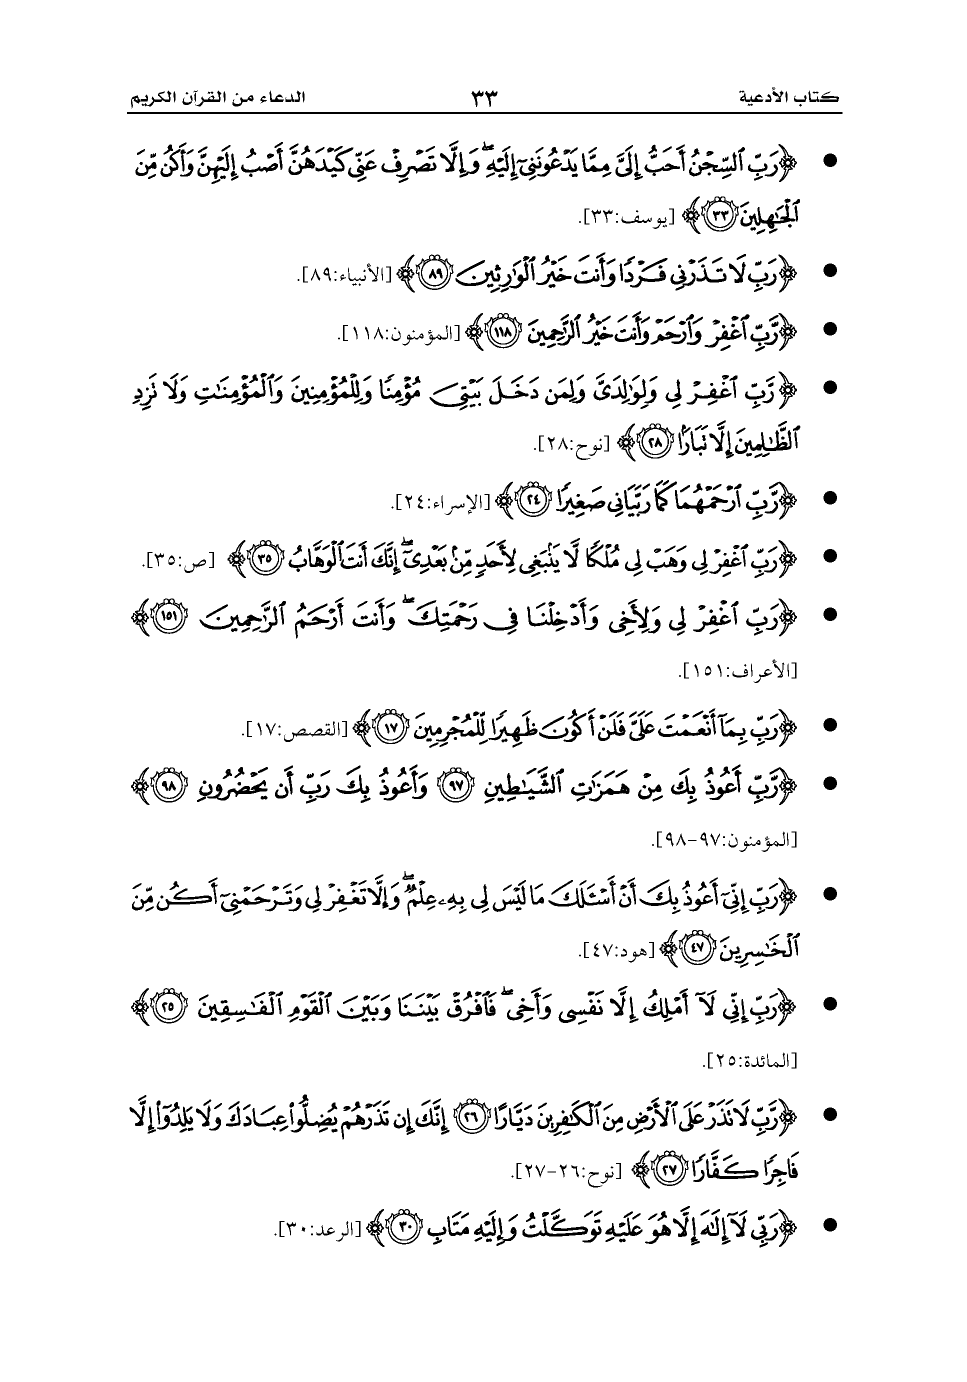 كتاب الأدعية ٣٣ الدعاء من القرآن الكريم
• ﴿رَبِّ ٱلسِّجۡنُ أَحَبُّ إِلَيَّ مِمَّا يَدۡعُونَنِيٓ إِلَيۡهِۖ وَإِلَّا تَصۡرِفۡ عَنِّي كَيۡدَهُنَّ أَصۡبُ إِلَيۡهِنَّ وَأَكُن مِّنَ
ٱلۡجَٰهِلِينَ ٣٣﴾ [يوسف:٣٣].
• ﴿رَبِّ لَا تَذَرۡنِي فَرۡدٗا وَأَنتَ خَيۡرُ ٱلۡوَٰرِثِينَ ٨٩﴾ [الأنبياء:٨٩].
• ﴿رَّبِّ ٱغۡفِرۡ وَٱرۡحَمۡ وَأَنتَ خَيۡرُ ٱلرَّٰحِمِينَ ١١٨﴾ [المؤمنون:١١٨].
• ﴿رَّبِّ ٱغۡفِرۡ لِي وَلِوَٰلِدَيَّ وَلِمَن دَخَلَ بَيۡتِيَ مُؤۡمِنٗا وَلِلۡمُؤۡمِنِينَ وَٱلۡمُؤۡمِنَٰتِ وَلَا تَزِدِ
ٱلظَّٰلِمِينَ إِلَّا تَبَارَۢا ٢٨﴾ [نوح:٢٨].
• ﴿رَّبِّ ٱرۡحَمۡهُمَا كَمَا رَبَّيَانِي صَغِيرٗا ٢٤﴾ [الإسراء:٢٤].
• ﴿رَبِّ ٱغۡفِرۡ لِي وَهَبۡ لِي مُلۡكٗا لَّا يَنۢبَغِي لِأَحَدٖ مِّنۢ بَعۡدِيٓۖ إِنَّكَ أَنتَ ٱلۡوَهَّابُ ٣٥﴾ [ص:٣٥].
• ﴿رَبِّ ٱغۡفِرۡ لِي وَلِأَخِي وَأَدۡخِلۡنَا فِي رَحۡمَتِكَۖ وَأَنتَ أَرۡحَمُ ٱلرَّٰحِمِينَ ١٥١﴾
[الأعراف:١٥١].
• ﴿رَبِّ بِمَآ أَنۡعَمۡتَ عَلَيَّ فَلَنۡ أَكُونَ ظَهِيرٗا لِّلۡمُجۡرِمِينَ ١٧﴾ [القصص:١٧].
• ﴿رَّبِّ أَعُوذُ بِكَ مِنۡ هَمَزَٰتِ ٱلشَّيَٰطِينِ ٩٧ وَأَعُوذُ بِكَ رَبِّ أَن يَحۡضُرُونِ ٩٨﴾
[المؤمنون:٩٧-٩٨].
• ﴿رَبِّ إِنِّيٓ أَعُوذُ بِكَ أَنۡ أَسۡـَٔلَكَ مَا لَيۡسَ لِي بِهِۦ عِلۡمٞۖ وَإِلَّا تَغۡفِرۡ لِي وَتَرۡحَمۡنِيٓ أَكُن مِّنَ
ٱلۡخَٰسِرِينَ ٤٧﴾ [هود:٤٧].
• ﴿رَبِّ إِنِّي لَآ أَمۡلِكُ إِلَّا نَفۡسِي وَأَخِيۖ فَٱفۡرُقۡ بَيۡنَنَا وَبَيۡنَ ٱلۡقَوۡمِ ٱلۡفَٰسِقِينَ ٢٥﴾
[المائدة:٢٥].
• ﴿رَّبِّ لَا تَذَرۡ عَلَى ٱلۡأَرۡضِ مِنَ ٱلۡكَٰفِرِينَ دَيَّارًا ٢٦ إِنَّكَ إِن تَذَرۡهُمۡ يُضِلُّواْ عِبَادَكَ وَلَا يَلِدُوٓاْ إِلَّا
فَاجِرٗا كَفَّارٗا ٢٧﴾ [نوح:٢٦-٢٧].
• ﴿رَبِّي لَآ إِلَٰهَ إِلَّا هُوَ عَلَيۡهِ تَوَكَّلۡتُ وَإِلَيۡهِ مَتَابِ ٣٠﴾ [الرعد:٣٠].